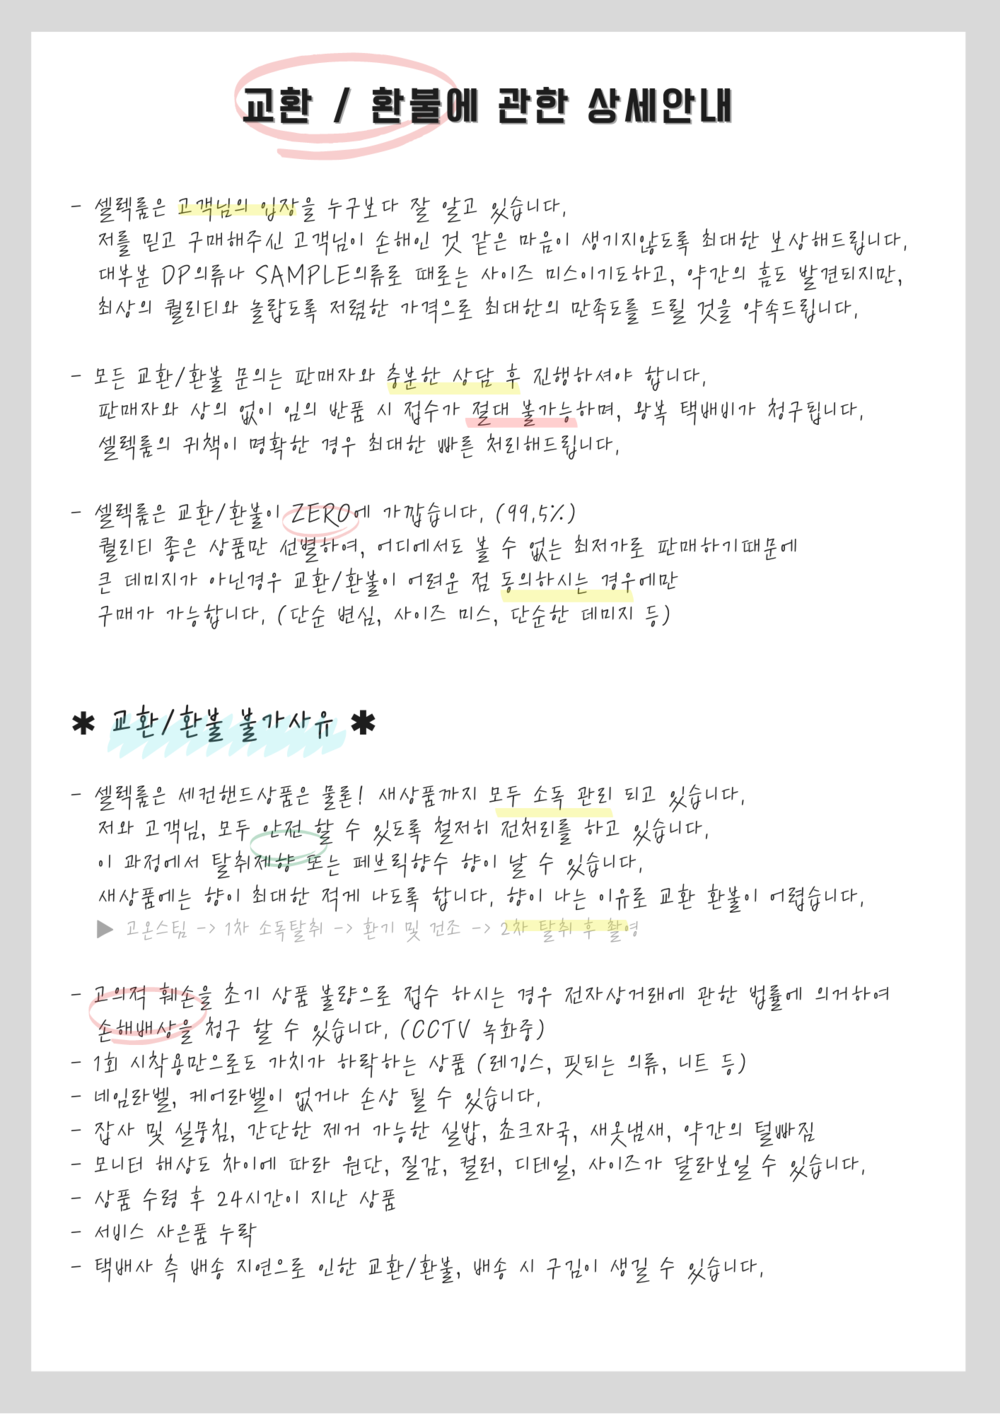 교환 / 환불에 관한 상세안내
- 셀렉룸은 고객님의 입장을 누구보다 잘 알고 있습니다.
저를 믿고 구매해주신 고객님이 손해인 것 같은 마음이 생기지않도록 최대한 보상해드립니다.
대부분 DP의류나 SAMPLE의류로 때로는 사이즈 미스이기도하고, 약간의 흠도 발견되지만,
최상의 퀄리티와 놀랍도록 저렴한 가격으로 최대한의 만족도를 드릴 것을 약속드립니다.
- 모든 교환/환불 문의는 판매자와 충분한 상담 후 진행하셔야 합니다.
판매자와 상의 없이 임의 반품 시 접수가 절대 불가능하며, 왕복 택배비가 청구됩니다.
셀렉룸의 귀책이 명확한 경우 최대한 빠른 처리해드립니다.
- 셀렉룸은 교환/환불이 ZERO에 가깝습니다. (99.5%)
퀄리티 좋은 상품만 선별하여, 어디에서도 볼 수 없는 최저가로 판매하기때문에
큰 데미지가 아닌경우 교환/환불이 어려운 점 동의하시는 경우에만
구매가 가능합니다. (단순 변심, 사이즈 미스, 단순한 데미지 등)
* 교환/환불 불가사유 *
- 셀렉룸은 세컨핸드상품은 물론! 새상품까지 모두 소독 관리 되고 있습니다.
저와 고객님, 모두 안전 할 수 있도록 철저히 전처리를 하고 있습니다.
이 과정에서 탈취제향 또는 페브릭향수 향이 날 수 있습니다.
새상품에는 향이 최대한 적게 나도록 합니다. 향이 나는 이유로 교환 환불이 어렵습니다.
▶ 고온스팀 -> 1차 소독탈취 -> 환기 및 건조 -> 2차 탈취 후 촬영
- 고의적 훼손을 초기 상품 불량으로 접수 하시는 경우 전자상거래에 관한 법률에 의거하여
손해배상을 청구 할 수 있습니다. (CCTV 녹화중)
- 1회 시착용만으로도 가치가 하락하는 상품 (레깅스, 핏되는 의류, 니트 등)
- 네임라벨, 케어라벨이 없거나 손상 될 수 있습니다.
- 잡사 및 실뭉침, 간단한 제거 가능한 실밥, 쵸크자국, 새옷냄새, 약간의 털빠짐
- 모니터 해상도 차이에 따라 원단, 질감, 컬러, 디테일, 사이즈가 달라보일 수 있습니다.
- 상품 수령 후 24시간이 지난 상품
- 서비스 사은품 누락
- 택배사 측 배송 지연으로 인한 교환/환불, 배송 시 구김이 생길 수 있습니다.